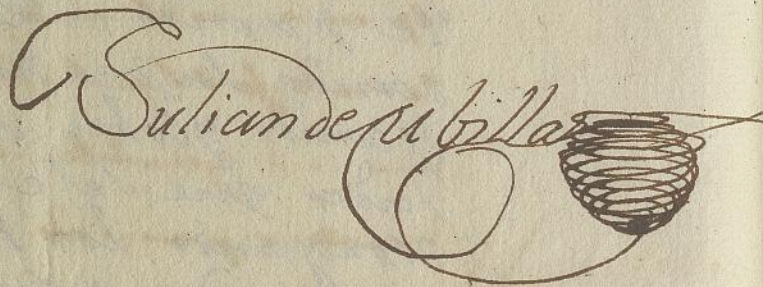 Julian de Ubilla